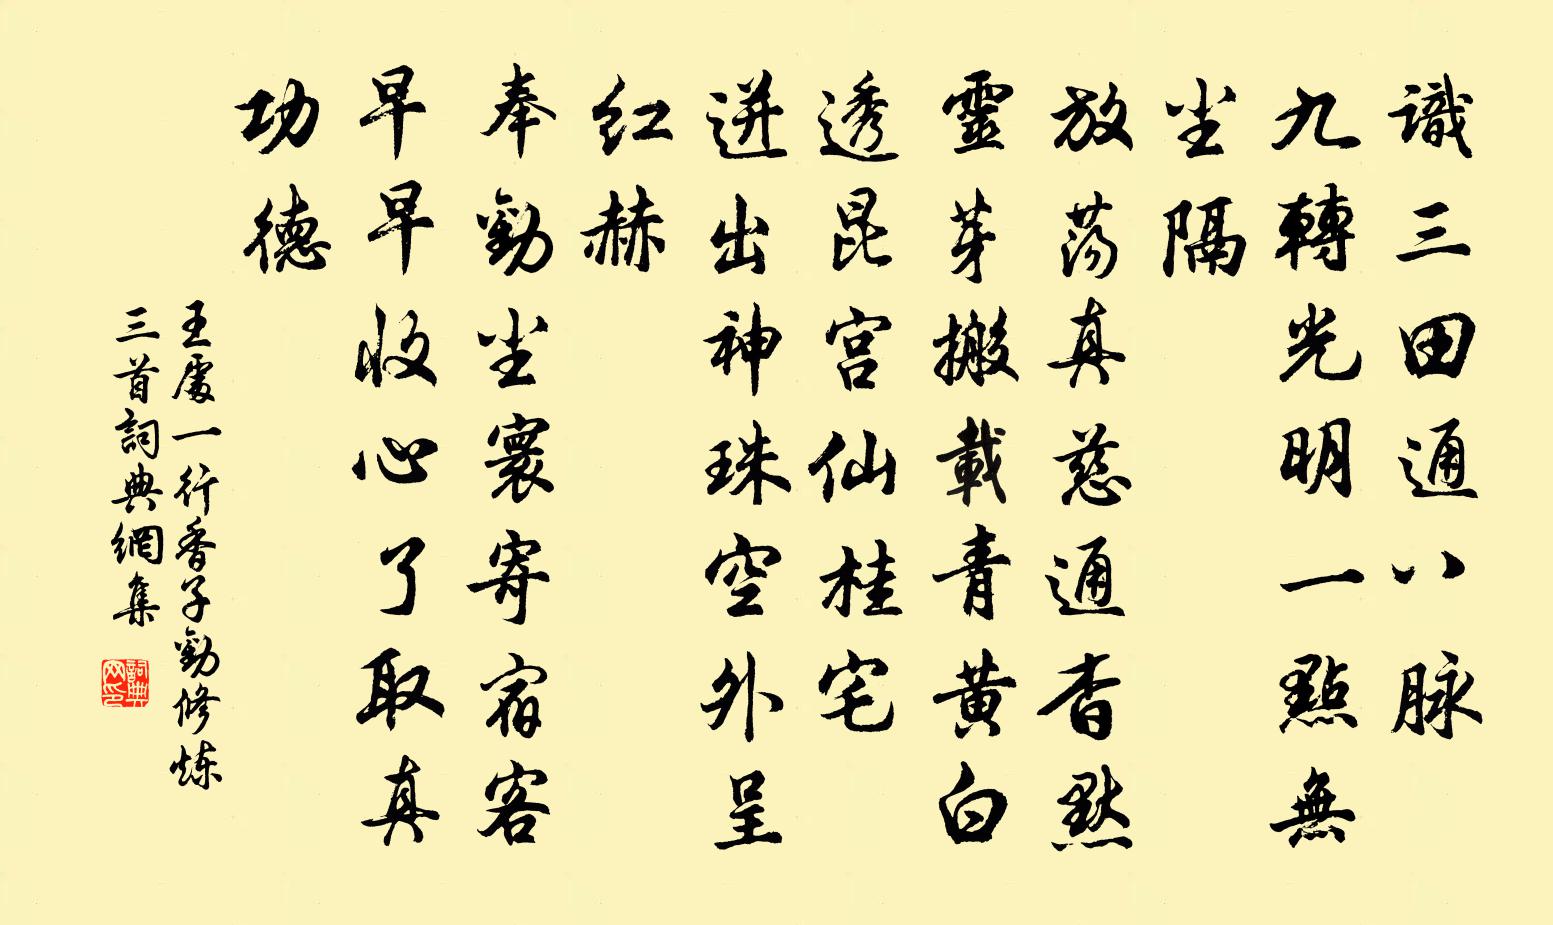 識三田通八脉
九轉光明一點無
尘隔
放荡真慈通杳默
靈芽搬載青黄白
透昆宫仙桂宅
迸出神珠空外呈
红赫
奉勸尘寰寄宿客
早早收心了取真
功德
王處一行香子勸修炼
三首詞典網集
詞典
网印